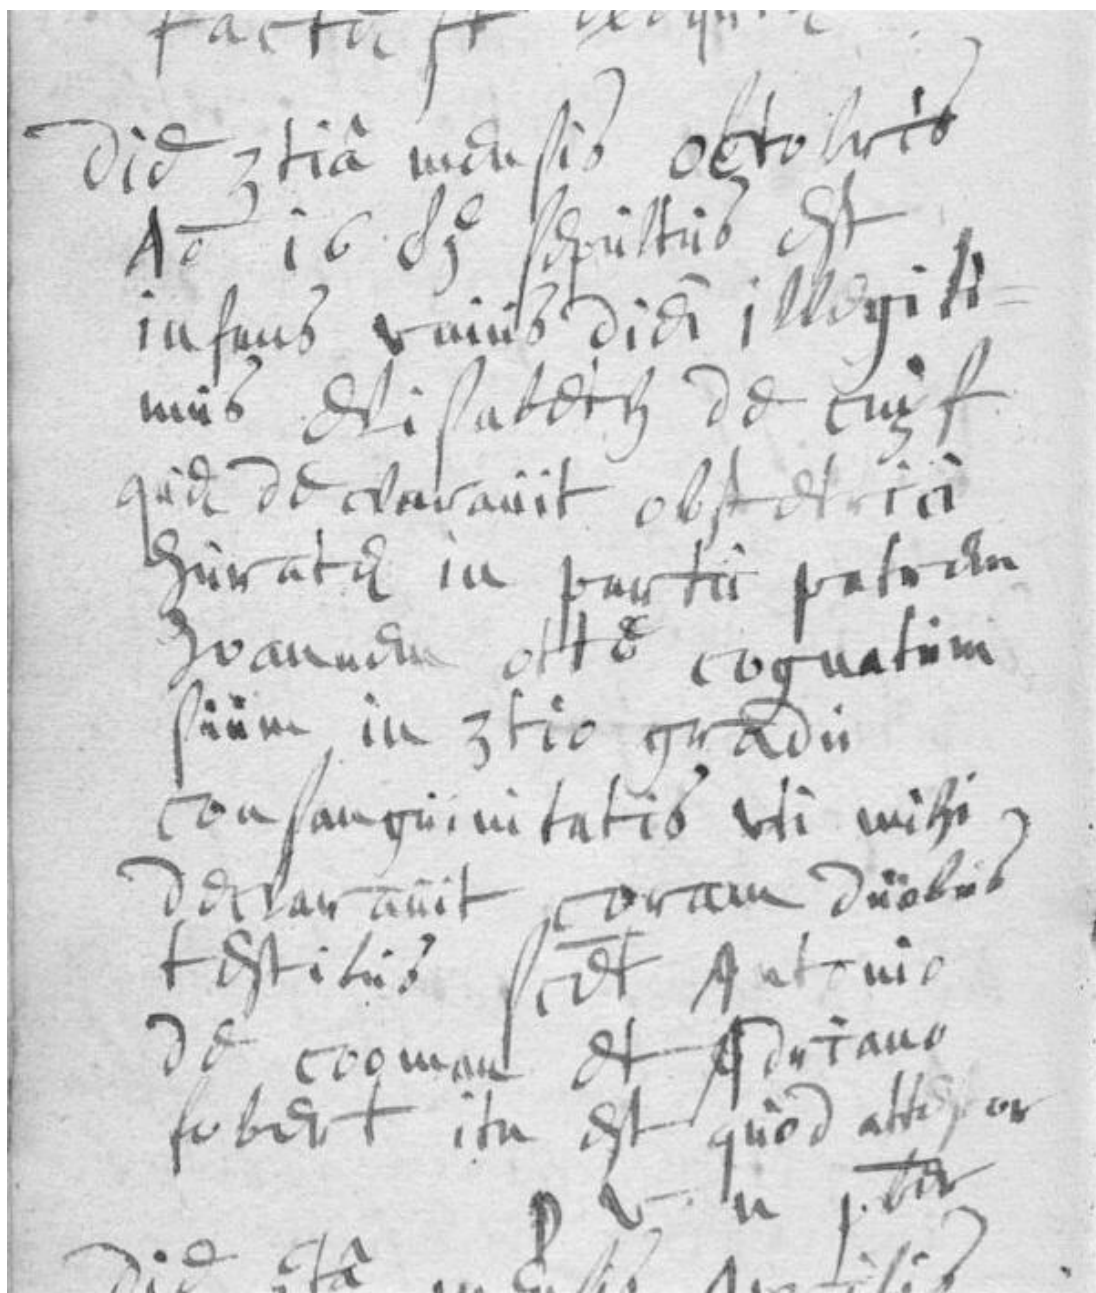 facta est
Die 3tia mensis octobris
Ao 16 sepultus est
infans unius diei illegiti=
mus Elisabeth de cuijf
quae declaravit obstetrici
Juratae in partu patrem
Joannem otte cognatum
suum in 3tio gradu
consanguinitatis uti mihi
declaravit coram duobus
testibus scet Antonio
de cooman et Adriano
fobert ita est quod attestor
P V n pbr
Die 6ta mensis Aprilis